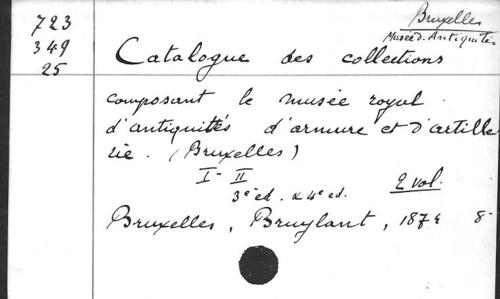 723
349
25
Bruxelles
Musée d. Antiquités
Catalogue des collections
composant le musée royal
d'antiquités d'armure et d'artille
rie. (Bruxelles)
I - II
3e ed. & 4e ed. 2 vol.
Bruxelles, Bruylant, 1874 8°